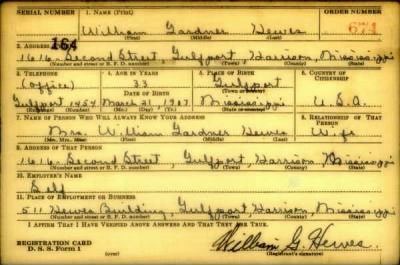 SERIAL NUMBER 1. NAME (Print) ORDER NUMBER
164 William Gardner Hewes 671
(First) (Middle) (Last)
2. ADDRESS (Print)
1616 Second Street, Gulfport, Harrison, Mississippi
(Number and street or R. F. D. number) (Town) (County) (State)
3. TELEPHONE 4. AGE IN YEARS 5. PLACE OF BIRTH 6. COUNTRY OF CITIZENSHIP
(Office) 33 Gulfport
DATE OF BIRTH (Town or county)
Gulfport 1454 March 21, 1907 Mississippi U.S.A.
(Exchange) (Number) (Mo.) (Day) (Yr.) (State or country)
7. NAME OF PERSON WHO WILL ALWAYS KNOW YOUR ADDRESS 8. RELATIONSHIP OF THAT PERSON
Mrs. William Gardner Hewes Wife
(Mr., Mrs., Miss) (First) (Middle) (Last)
9. ADDRESS OF THAT PERSON
1616 Second Street, Gulfport, Harrison, Mississippi
(Number and street or R. F. D. number) (Town) (County) (State)
10. EMPLOYER'S NAME
Self
11. PLACE OF EMPLOYMENT OR BUSINESS
511 Hewes Building, Gulfport, Harrison, Mississippi
(Number and street or R. F. D. number) (Town) (County) (State)
I AFFIRM THAT I HAVE VERIFIED ABOVE ANSWERS AND THAT THEY ARE TRUE.
REGISTRATION CARD
D. S. S. Form 1 (over) William G. Hewes
(Registrant's signature)